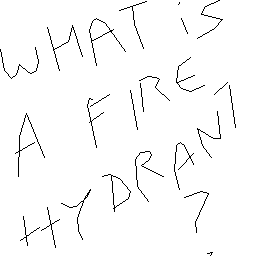 WHAT IS
A FIRE
HYDRANT
?